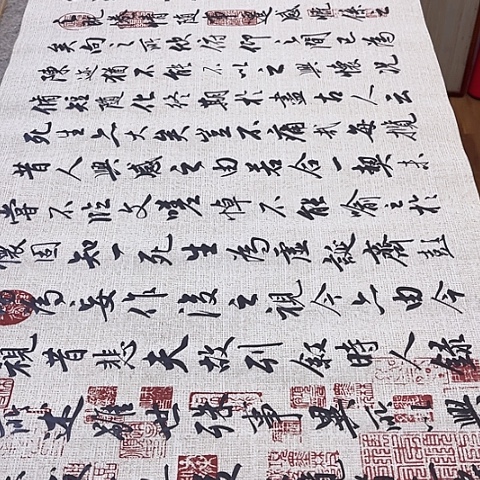 情隨遷感慨係之
矣向之所欣俯仰之間已為
陳迹猶不能不以之興懷況
脩短隨化終期於盡古人云
死生亦大矣豈不痛哉每攬
昔人興感之由若合一契未
嘗不臨文嗟悼不能喻之於
懷固知一死生為虛誕齊彭
為妄作後之視今亦由今
視昔悲夫故列敘時人錄
所述雖世殊事異所以興